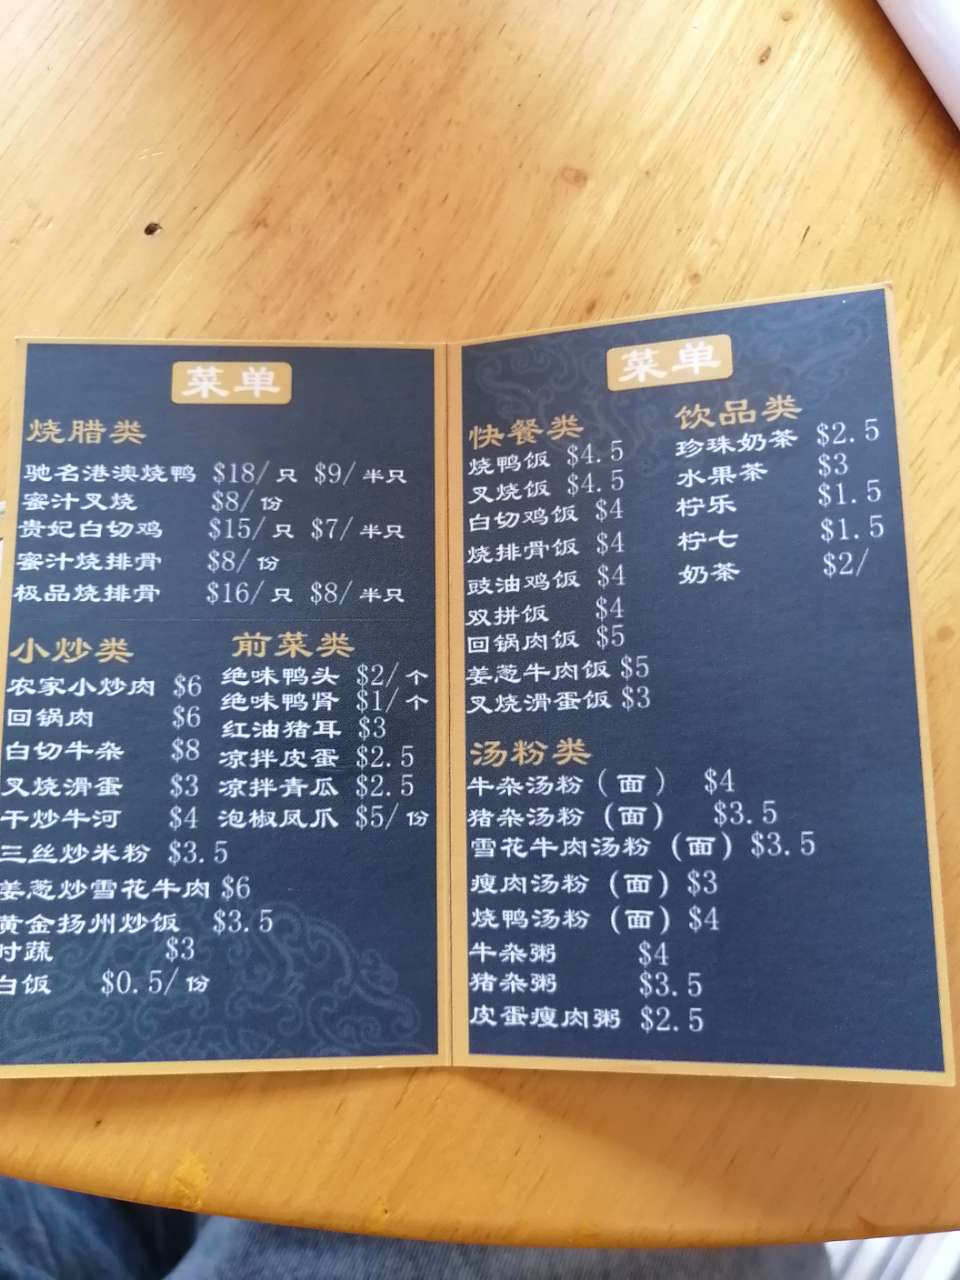 菜单
烧腊类
驰名港澳烧鸭 $18/只 $9/半只
蜜汁叉烧 $8/份
贵妃白切鸡 $15/只 $7/半只
蜜汁烧排骨 $8/份
极品烧排骨 $16/只 $8/半只
小炒类
农家小炒肉 $6
回锅肉 $6
白切牛杂 $8
叉烧滑蛋 $3
干炒牛河 $4
三丝炒米粉 $3.5
姜葱炒雪花牛肉 $6
黄金扬州炒饭 $3.5
时蔬 $3
白饭 $0.5/份
前菜类
绝味鸭头 $2/个
绝味鸭肾 $1/个
红油猪耳 $3
凉拌皮蛋 $2.5
凉拌青瓜 $2.5
泡椒凤爪 $5/份
菜单
快餐类
烧鸭饭 $4.5
叉烧饭 $4.5
白切鸡饭 $4
烧排骨饭 $4
豉油鸡饭 $4
双拼饭 $4
回锅肉饭 $5
姜葱牛肉饭 $5
叉烧滑蛋饭 $3
饮品类
珍珠奶茶 $2.5
水果茶 $3
柠乐 $1.5
柠七 $1.5
奶茶 $2/
汤粉类
牛杂汤粉（面） $4
猪杂汤粉（面） $3.5
雪花牛肉汤粉（面）$3.5
瘦肉汤粉（面）$3
烧鸭汤粉（面）$4
牛杂粥 $4
猪杂粥 $3.5
皮蛋瘦肉粥 $2.5